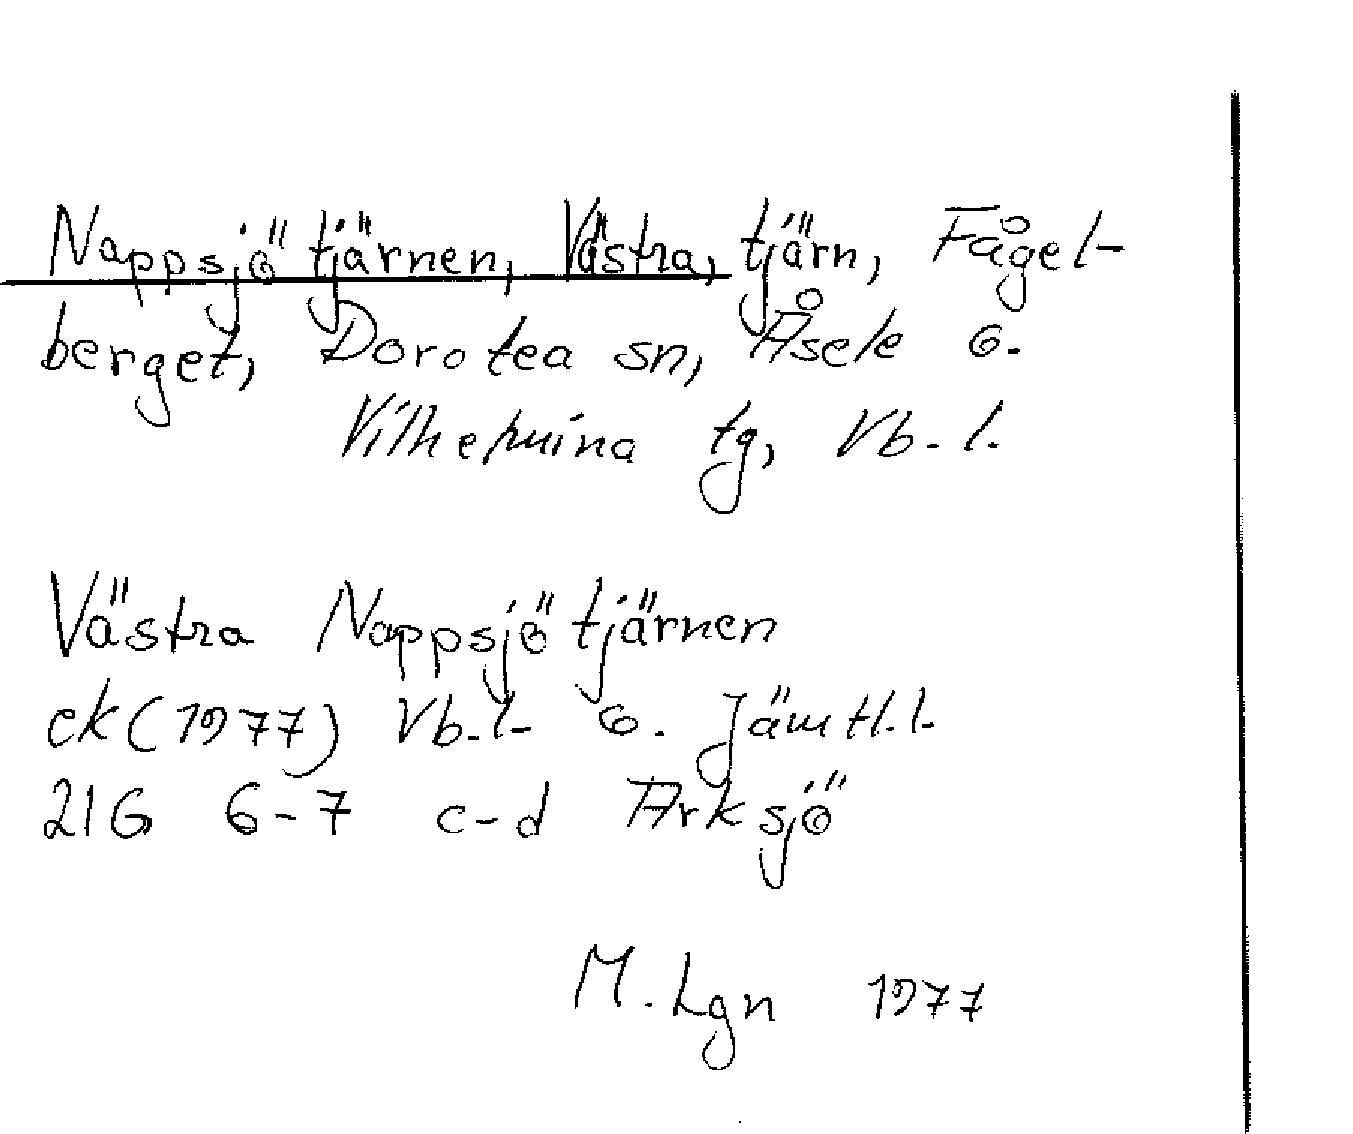 Nappsjötjärnen, Västra, tjärn, Fågel-
berget, Dorotea sn, Åsele o.
Vilhelmina tg, Vb. l.
Västra Nappsjötjärnen
ek (1977) Vb. l. o. Jämtl. l.
21G 6-7 c-d Arksjö
M. Lgn 1977